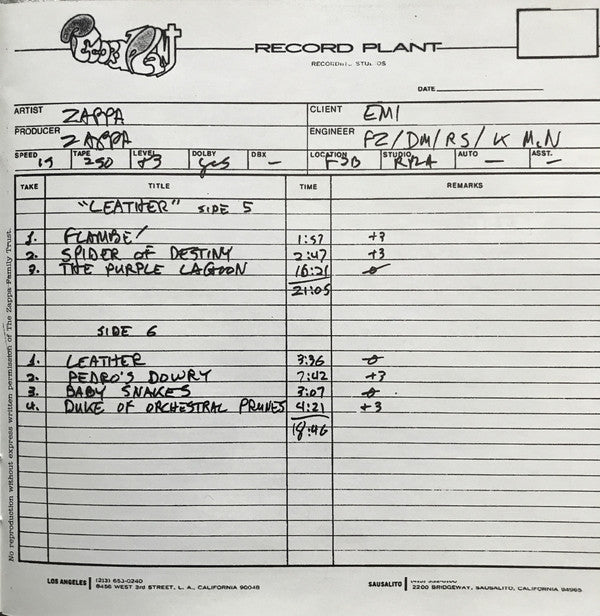 Record Plant
RECORD PLANT
RECORDING STUDIOS
DATE
ARTIST ZAPPA CLIENT EMI
PRODUCER ZAPPA ENGINEER FZ/DM/RS/K McN
SPEED 15 TAPE 250 LEVEL +3 DOLBY yes DBX — LOCATION STUDIO AUTO — ASST. —
TAKE TITLE TIME REMARKS
"LEATHER" SIDE 5
1. FLAMBE! 1:57 +3
2. SPIDER OF DESTINY 2:47 +3
3. THE PURPLE LAGOON 16:21 0
21:05
SIDE 6
1. LEATHER 3:36 0
2. PEDRO'S DOWRY 7:42 +3
3. BABY SNAKES 3:07 0
4. DUKE OF ORCHESTRAL PRUNES 4:21 +3
18:46
No reproduction without express written permission of The Zappa Family Trust.
LOS ANGELES (213) 653-0240
8456 WEST 3rd STREET, L. A., CALIFORNIA 90048
SAUSALITO
2200 BRIDGEWAY, SAUSALITO, CALIFORNIA 94965